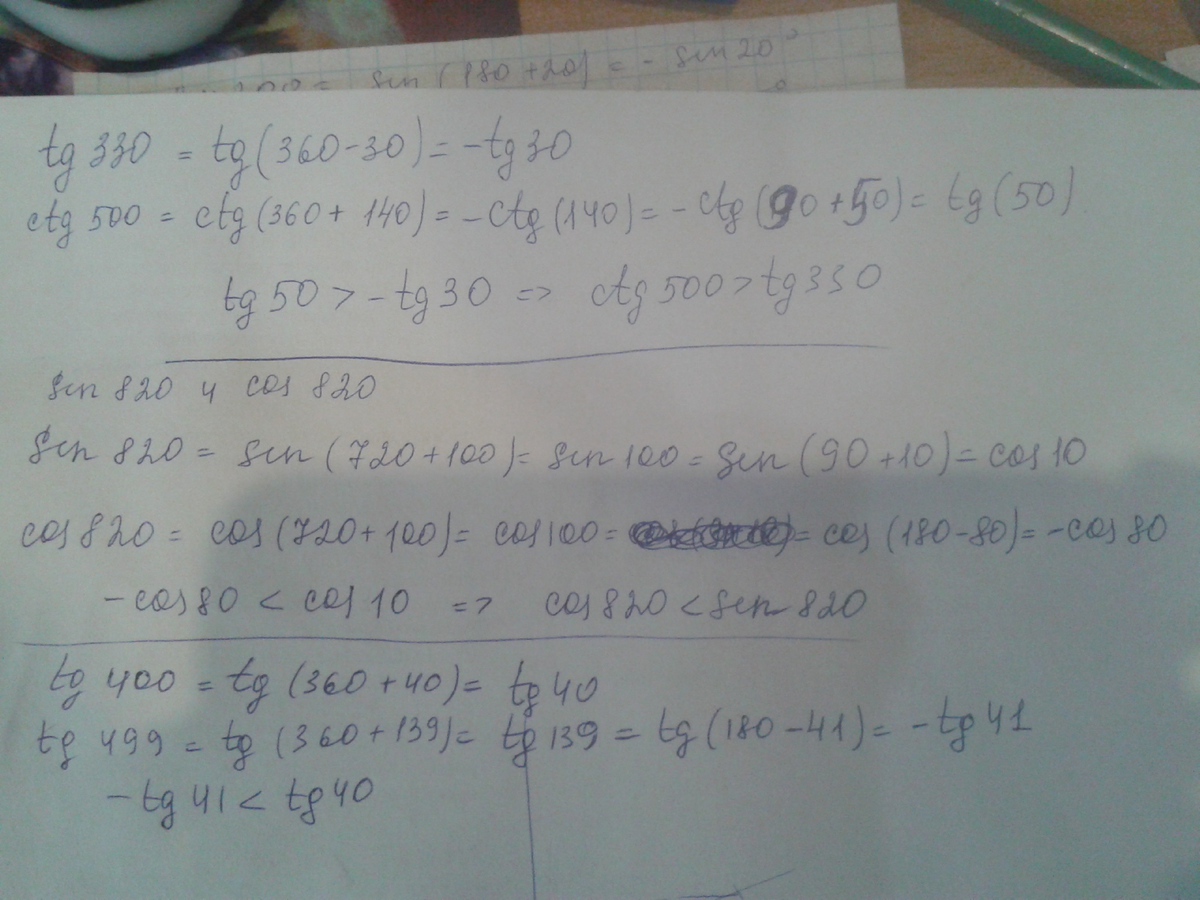 sin (180 + 20) = - sin 20°
tg 330 = tg (360 - 30) = -tg 30
ctg 500 = ctg (360 + 140) = -ctg (140) = -ctg (90 + 50) = tg (50)
tg 50 > -tg 30 => ctg 500 > tg 330
sin 820 и cos 820
sin 820 = sin (720 + 100) = sin 100 = sin (90 + 10) = cos 10
cos 820 = cos (720 + 100) = cos 100 = = cos (180 - 80) = -cos 80
-cos 80 < cos 10 => cos 820 < sin 820
tg 400 = tg (360 + 40) = tg 40
tg 499 = tg (360 + 139) = tg 139 = tg (180 - 41) = -tg 41
-tg 41 < tg 40